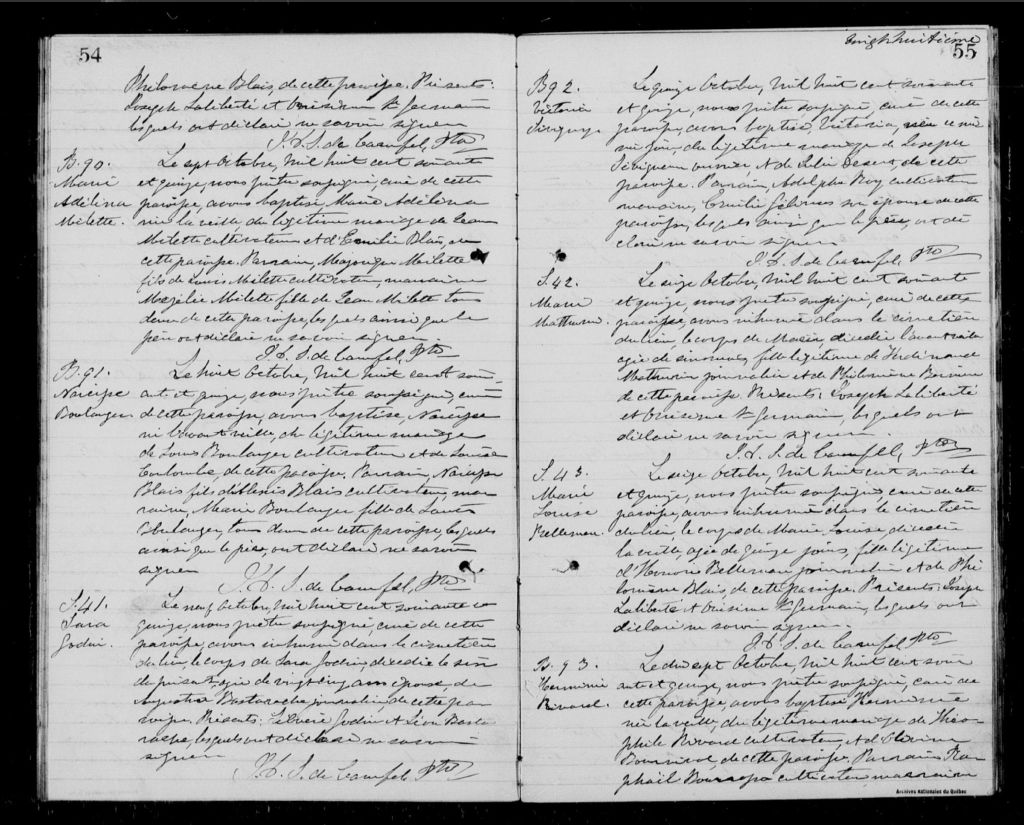 54
Philomène Blais, de cette paroisse. Présents:
Joseph Laliberté et Onésime St Germain
lesquels ont déclaré ne savoir signer
J. H. S. de Carufel, Ptre
B. 90.
Marie
Adélina
Milette.
Le sept Octobre, Mil huit cent soixante
et quinze, nous prêtre soussigné, curé de cette
paroisse, avons baptisé Marie Adélina
née la veille, du légitime mariage de Jean
Milette cultivateur et d'Emilie Blais, de
cette paroisse. Parrain, Majorique Milette
fils de Louis Milette cultivateur, marraine
Milette fille de Jean Milette tous
deux de cette paroisse, lesquels ainsi que le
père ont déclaré ne savoir signer.
J. H. S. de Carufel, Ptre
B. 91.
Narcisse
Boulanger
Le huit Octobre, Mil huit cent soix-
ante et quinze, nous prêtre soussigné, curé
de cette paroisse, avons baptisé, Narcisse
né l'avant veille, du légitime mariage
de Louis Boulanger cultivateur et de Louise
Coulombe, de cette paroisse. Parrain, Narcisse
Blais fils d'Alexis Blais cultivateur, mar
raine, Marie Boulanger fille de Louis
Boulanger, tous deux de cette paroisse, lesquels
ainsi que le père, ont déclaré ne savoir
signer
J. H. S. de Carufel, Ptre
S. 41.
Sara
Godin.
Le neuf Octobre, Mil huit cent soixante et
quinze, nous prêtre soussigné, curé de cette
paroisse, avons inhumé dans le cimetière
du lieu, le corps de Sara Godin, décédée le
âgée de vingt cinq ans, épouse, de
Bastarache journalier de cette pa
roisse. Présents: Godin et Léon Basta
rache, lesquels ont déclaré ne savoir
signer
J. H. S. de Carufel Ptre
55
B 92.
Victoria
Le quinze Octobre, Mil huit cent soixante
et quinze, nous prêtre soussigné, curé de cette
paroisse, avons baptisé, Victoria, née ce mê
me jour, du légitime mariage de Joseph
et de de cette
paroisse. Parrain, Adolphe Roy cultivateur
marraine, Emilie son épouse de cette
paroisse, lesquels ainsi que le père, ont dé
claré ne savoir signer
J. H. S. de Carufel, Ptre
S. 42.
Marie
Mathurin.
Le seize Octobre, Mil huit cent soixante
et quinze, nous prêtre soussigné, curé de cette
paroisse, avons inhumé dans le cimetière
du lieu, le corps de Marie, décédée l'avant veille
âgée de six mois, fille légitime de Ferdinand
Mathurin journalier et de Philomène
de cette paroisse. Présents: Joseph Laliberté
et Onésime St Germain, lesquels ont
déclaré ne savoir signer.
J. H. S. de Carufel, Ptre
S. 43.
Marie
Louise
Bellemare.
Le seize Octobre, Mil huit cent soixante
et quinze, nous prêtre soussigné, curé de cette
paroisse, avons inhumé dans le cimetière
du lieu, le corps de Marie Louise, décédée
la veille, âgée de quinze jours, fille légitime
d'Honoré Bellemare journalier et de Phi
lomène Blais, de cette paroisse. Présents: Joseph
Laliberté et Onésime St Germain, lesquels ont
déclaré ne savoir signer.
J. H. S. de Carufel, Ptre
B. 93.
Herminie
Rivard.
Le dix sept Octobre, Mil huit cent soix
ante et quinze, nous prêtre soussigné, curé de
cette paroisse, avons baptisé Herminie
née la veille, du légitime mariage de Théo
phile Rivard cultivateur, et d'
de cette paroisse. Parrain, Ra
phaël Bourassa cultivateur, marraine
Archives nationales du Québec